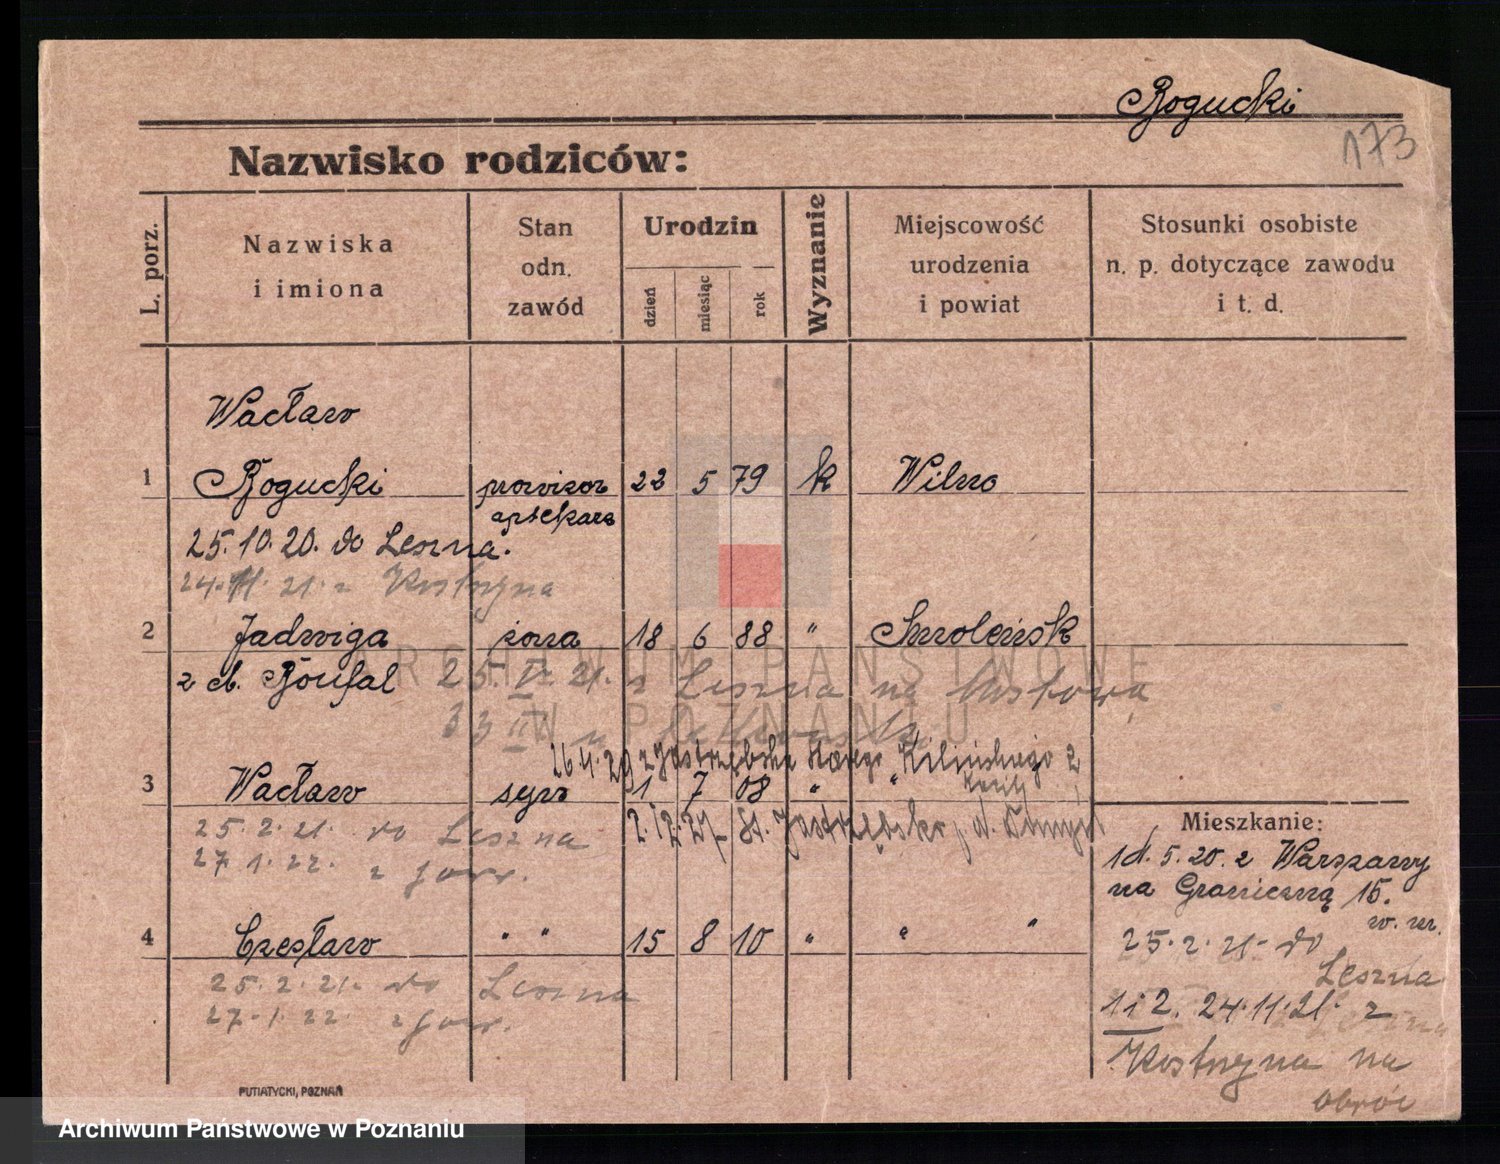 Bogucki
173
Nazwisko rodziców:
L. porz.
Nazwiska
i imiona
Stan
odn.
zawód
Urodzin
dzień
miesiąc
rok
Wyznanie
Miejscowość
urodzenia
i powiat
Stosunki osobiste
n. p. dotyczące zawodu
i t. d.
Wacław
1 Bogucki prowizor 22 5 79 k Wilno
aptekars
25.10.20. do Leszna.
24. 11. 21. z Kostrzyna
2 Jadwiga żona 18 6 88 " Smoleńsk
z d. Boufal 25. 21. z Leszna na Mostowa
26 4. 29 z Jastrzębska Starego Kilińskiego 2
3 Wacław syn 1 7 08 " "
25. 2. 21. do Leszna 2. 12. 27 St. Jastrzębsko p.
27. 1. 22. z
4 Czesław " " 15 8 10 " " "
25. 2. 21. do Leszna
27. 1. 22.
Mieszkanie:
14. 5. 20. z Warszawy
na Graniczną 15.
25. 2. 21. do
Leszna
1 i 2. 24. 11. 21. z
Kostrzyna na
obróc
PUTIATYCKI, POZNAŃ
ARCHIWUM PAŃSTWOWE
W POZNANIU
Archiwum Państwowe w Poznaniu